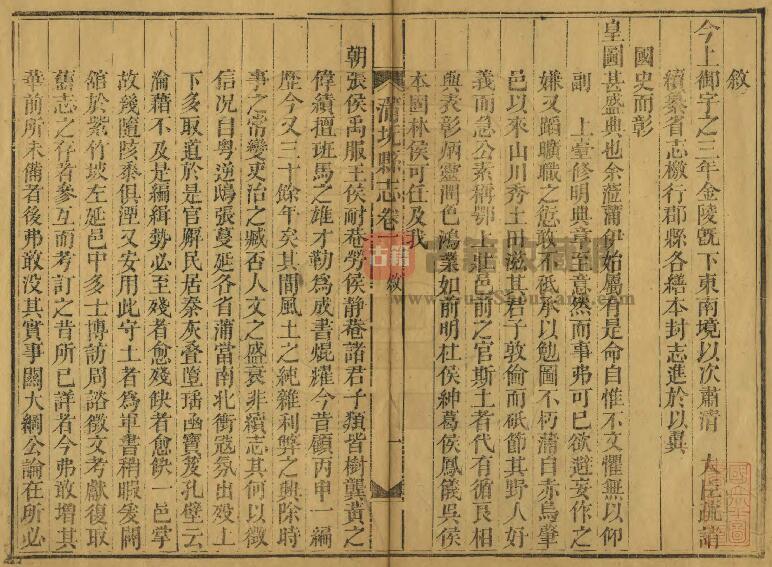 敘
今上御宇之三年金陵旣下東南境以次肅清　大臣疏請
續纂省志檄行郡縣各繕本封志進於以冀
國史而彰
皇圖甚盛典也余蒞蒲伊始屬有是命自惟不文懼無以仰
副　上憲修明典章至意然而事弗可已欲避妄作之
嫌又蹈曠職之愆敢不祗承以勉圖不朽蒲自赤烏肇
邑以來山川秀土田滋其君子敦倫而砥節其野人好
義而急公素稱鄂上壯邑前之官斯土者代有循良相
與表彰炳靈潤色鴻業如前明杜侯紳葛侯鳳儀吳侯
本固林侯可任及我
蒲圻縣志卷一　敘　一
朝張侯禹服王侯耐菴勞侯靜菴諸君子類皆樹龔黃之
偉績擅班馬之雄才勒爲成書焜耀今昔顧丙申一編
歷今又三十餘年矣其間風土之純雜利弊之興除時
事之常變吏治之臧否人文之盛衰非續志其何以徵
信况自粤逆鴟張蔓延各省蒲當南北衝寇氛出殁上
下多取道於是官廨民居秦灰叠墮瑤函寶笈孔壁云
淪藉不及是編緝勢必至殘者愈殘缺者愈缺一邑掌
故幾隨陔黍俱湮又安用此守土者爲軍書稍暇爰開
舘於紫竹坡左延邑中多士博訪周諮徵文考獻復取
舊志之存者參互而考訂之昔所已詳者今弗敢增其
華前所未備者後弗敢没其實事關大綱公論在所必
古籍
國立圖